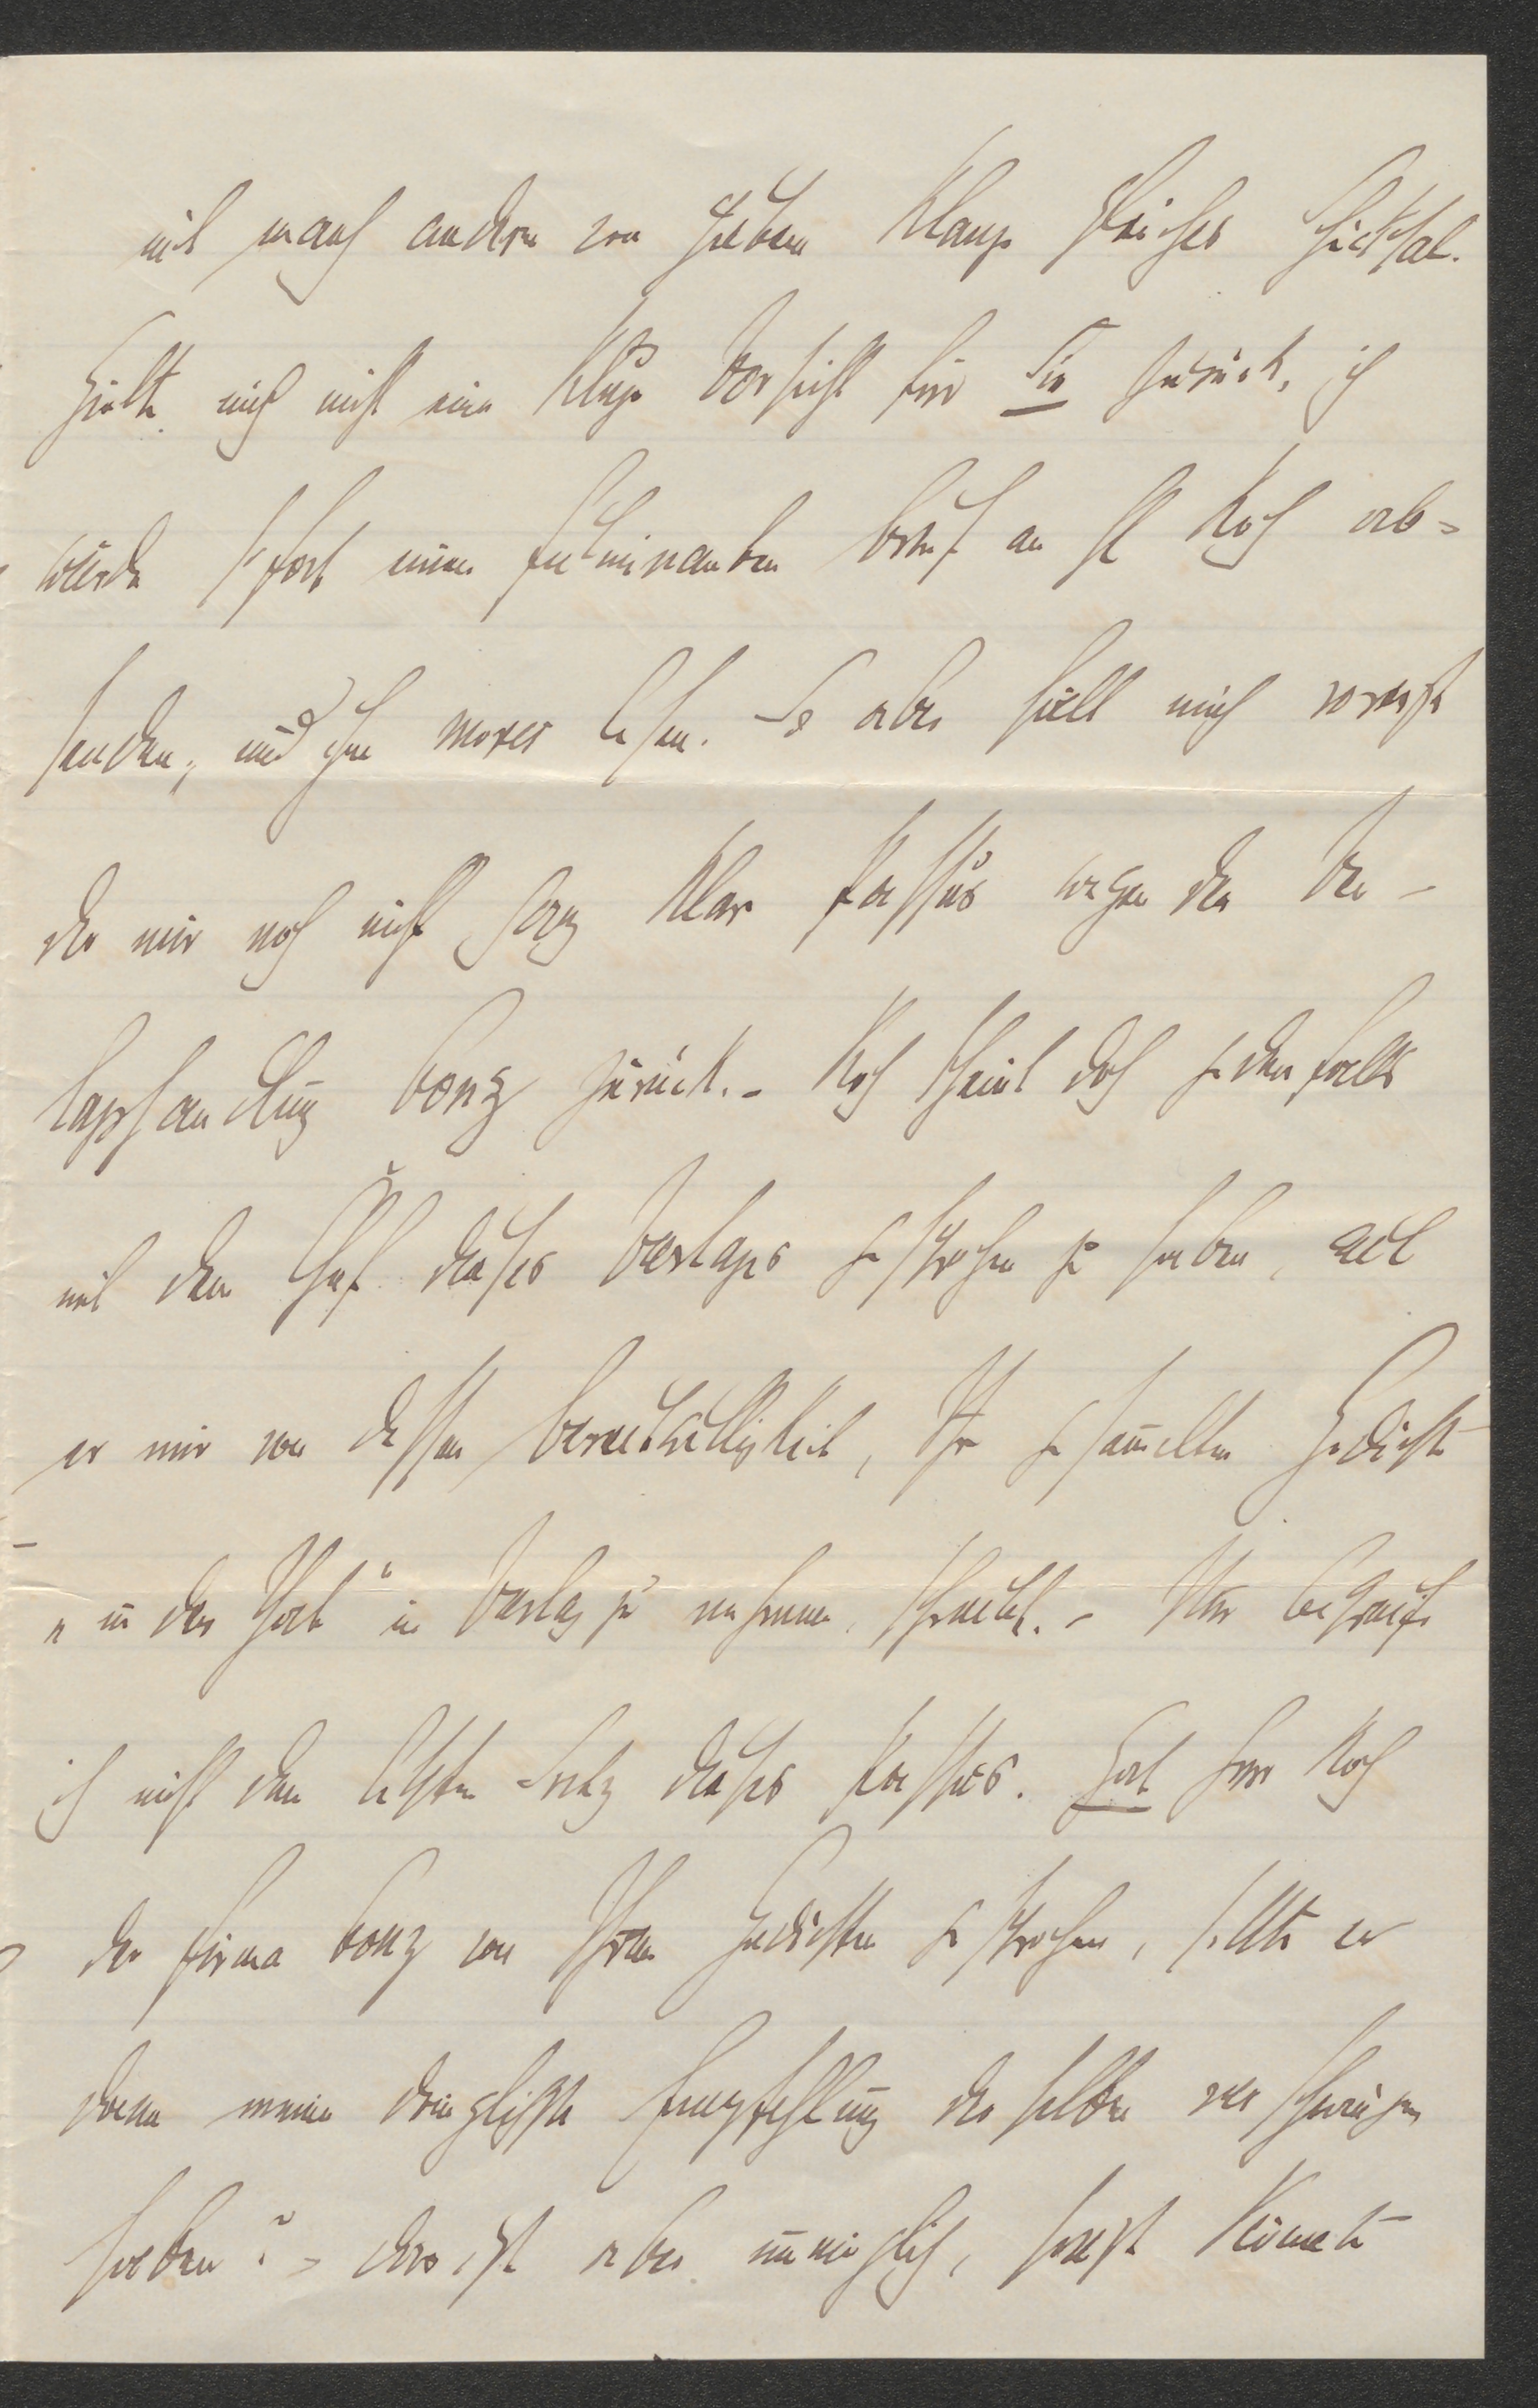 mit manch andern von gutem Klange gleiches Schicksal.
Hielte mich nicht eine kluge Vorsicht für Sie zurück, ich
würde sofort einen fulminanten Brief an H Koch ab=
senden, und ihn mores lehren. So aber hält mich vorerst
der mir noch nicht ganz klare Passus wegen der Ver-
lagshandlung Bonz zurück. – Koch scheint doch jedenfalls
mit dem Chef dieses Verlages gesprochen zu haben, weil
er mir von dessen Bereitwilligkeit, Ihre gesammelten Gedichte
„in der That“ in Verlag zu nehmen, schreibt. – Nur begreife
ich nicht den letzten Satz dieses Passus. Hat Herr Koch
der Firma Bonz von Ihren Gedichten gesprochen, sollte er
denn meine dringlichste Empfehlung derselben verschwiegen
haben? – das ist aber unmöglich, sonst könnte